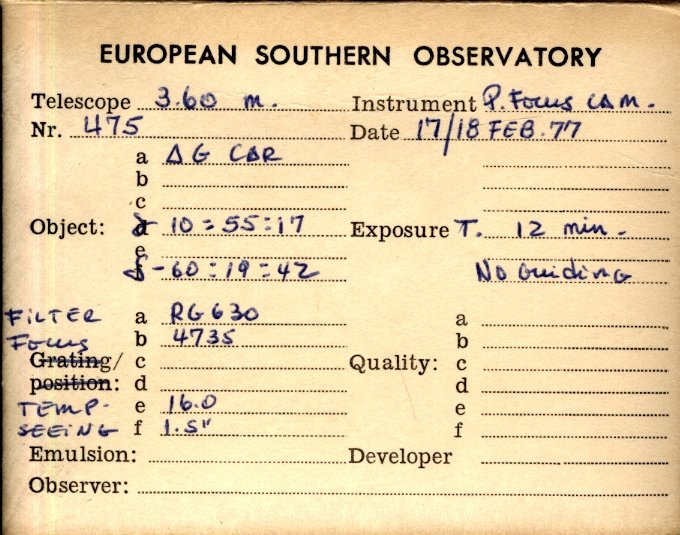 EUROPEAN SOUTHERN OBSERVATORY
Telescope 3.60 m. Instrument P. Focus CAM.
Nr. 475 Date 17/18 FEB. 77
a AG CAR
b
c
Object: d α 10=55=17 Exposure T. 12 min.
e
f δ -60:19:42 No Guiding
FILTER a RG630 a
Focus b 4735 b
Grating/ c Quality: c
position: d d
TEMP. e 16.0 e
SEEING f 1.5" f
Emulsion: Developer
Observer: